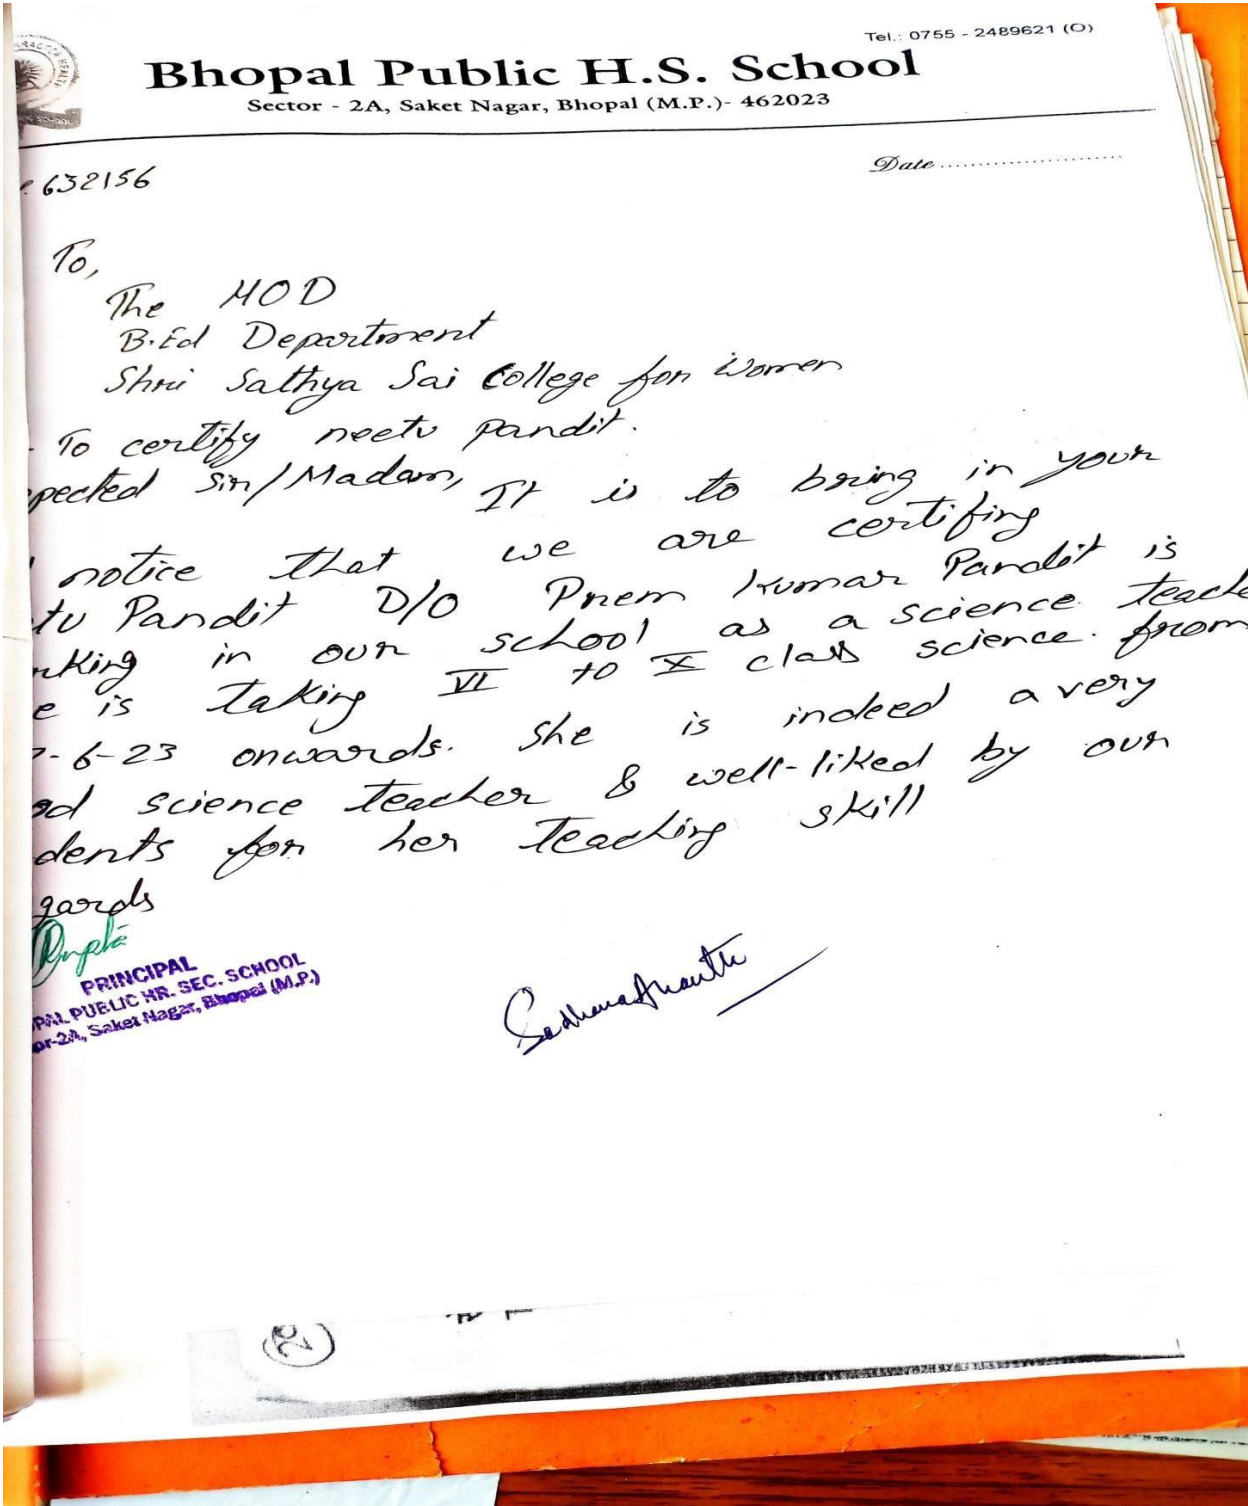 Tel.: 0755 - 2489621 (O)
Bhopal Public H.S. School
Sector - 2A, Saket Nagar, Bhopal (M.P.)- 462023
Date ........................
632156
To,
The HOD
B.Ed Department
Shri Sathya Sai College for Women
To certify neetu Pandit.
pected Sir/Madam, It is to bring in your
notice that we are certifing
tu Pandit D/O Prem Kumar Pandit is
rking in our school as a science teache
e is taking VI to X class science. from
-6-23 onwards. She is indeed a very
od science teacher & well-liked by our
dents for her teaching skill
gards
Gupta
PRINCIPAL
PAL PUBLIC HR. SEC. SCHOOL
or-2A, Saket Nagar, Bhopal (M.P.)